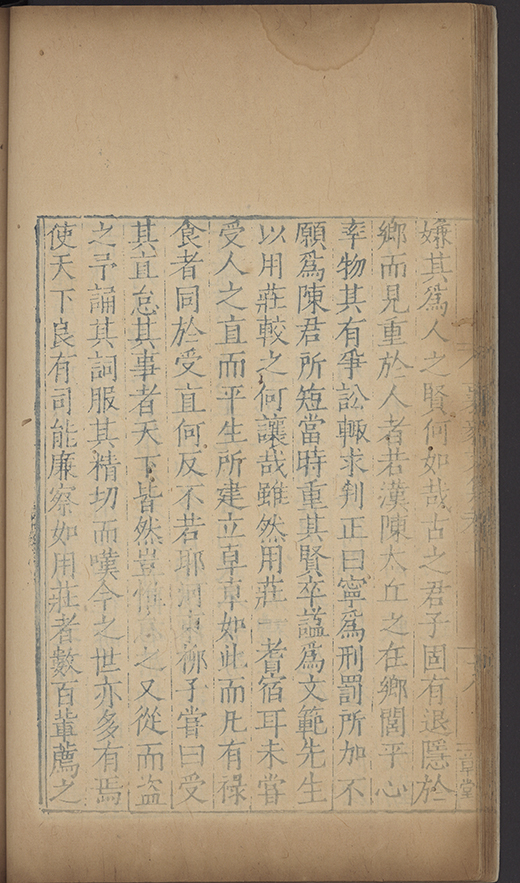 嫌其爲人之賢何如哉古之君子固有退隱於
鄉而見重於人者若漢陳太丘之在鄉閭平心
率物其有爭訟輙求判正曰寧爲刑罰所加不
願爲陳君所短當時重其賢卒謚爲文範先生
以用莊較之何讓哉雖然用莊一耆宿耳未甞
受人之直而平生所建立卓卓如此而凡有祿
食者同於受直何反不若耶河東柳子甞曰受
其直怠其事者天下皆然豈惟怠之又從而盜
之予誦其詞服其精切而嘆今之世亦多有焉
使天下良有司能廉察如用莊者數百軰薦之